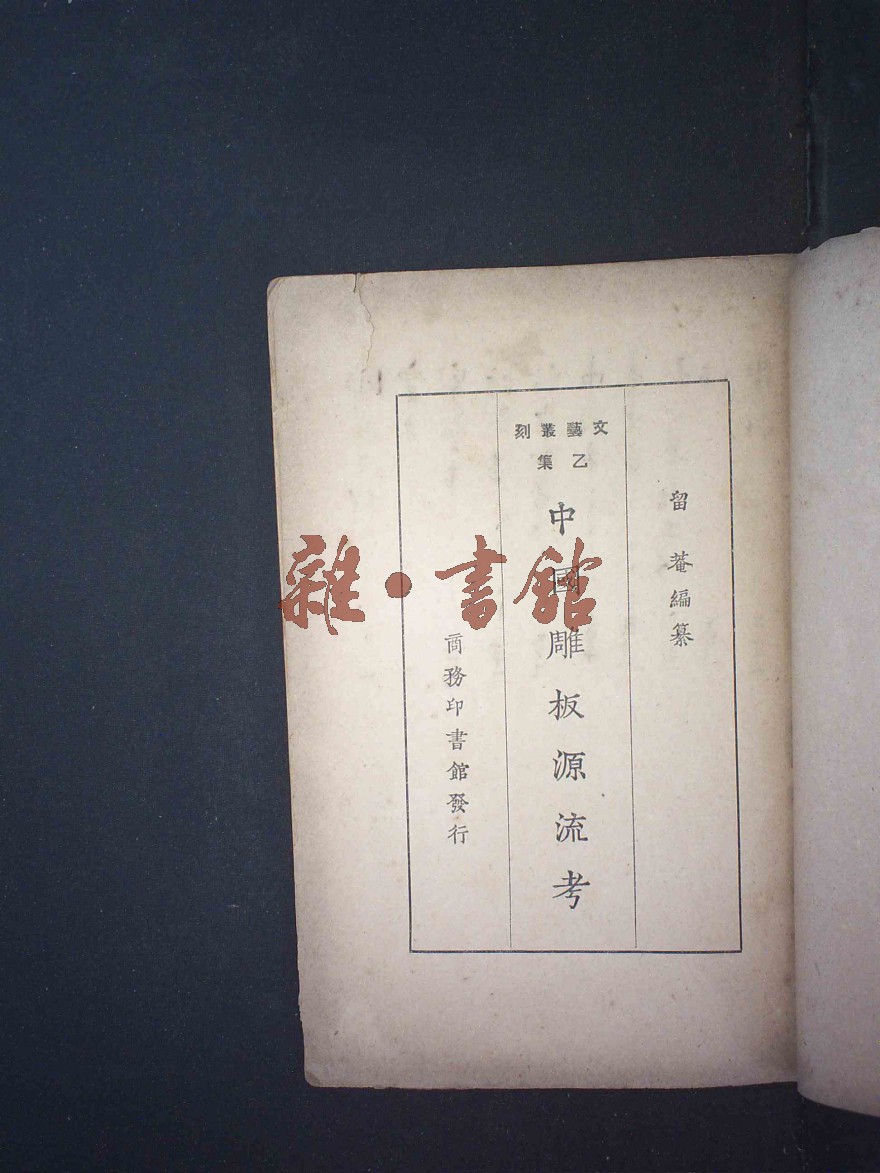 留菴編纂
文藝叢刻
乙集
中國雕板源流考
商務印書館發行
雜·書館